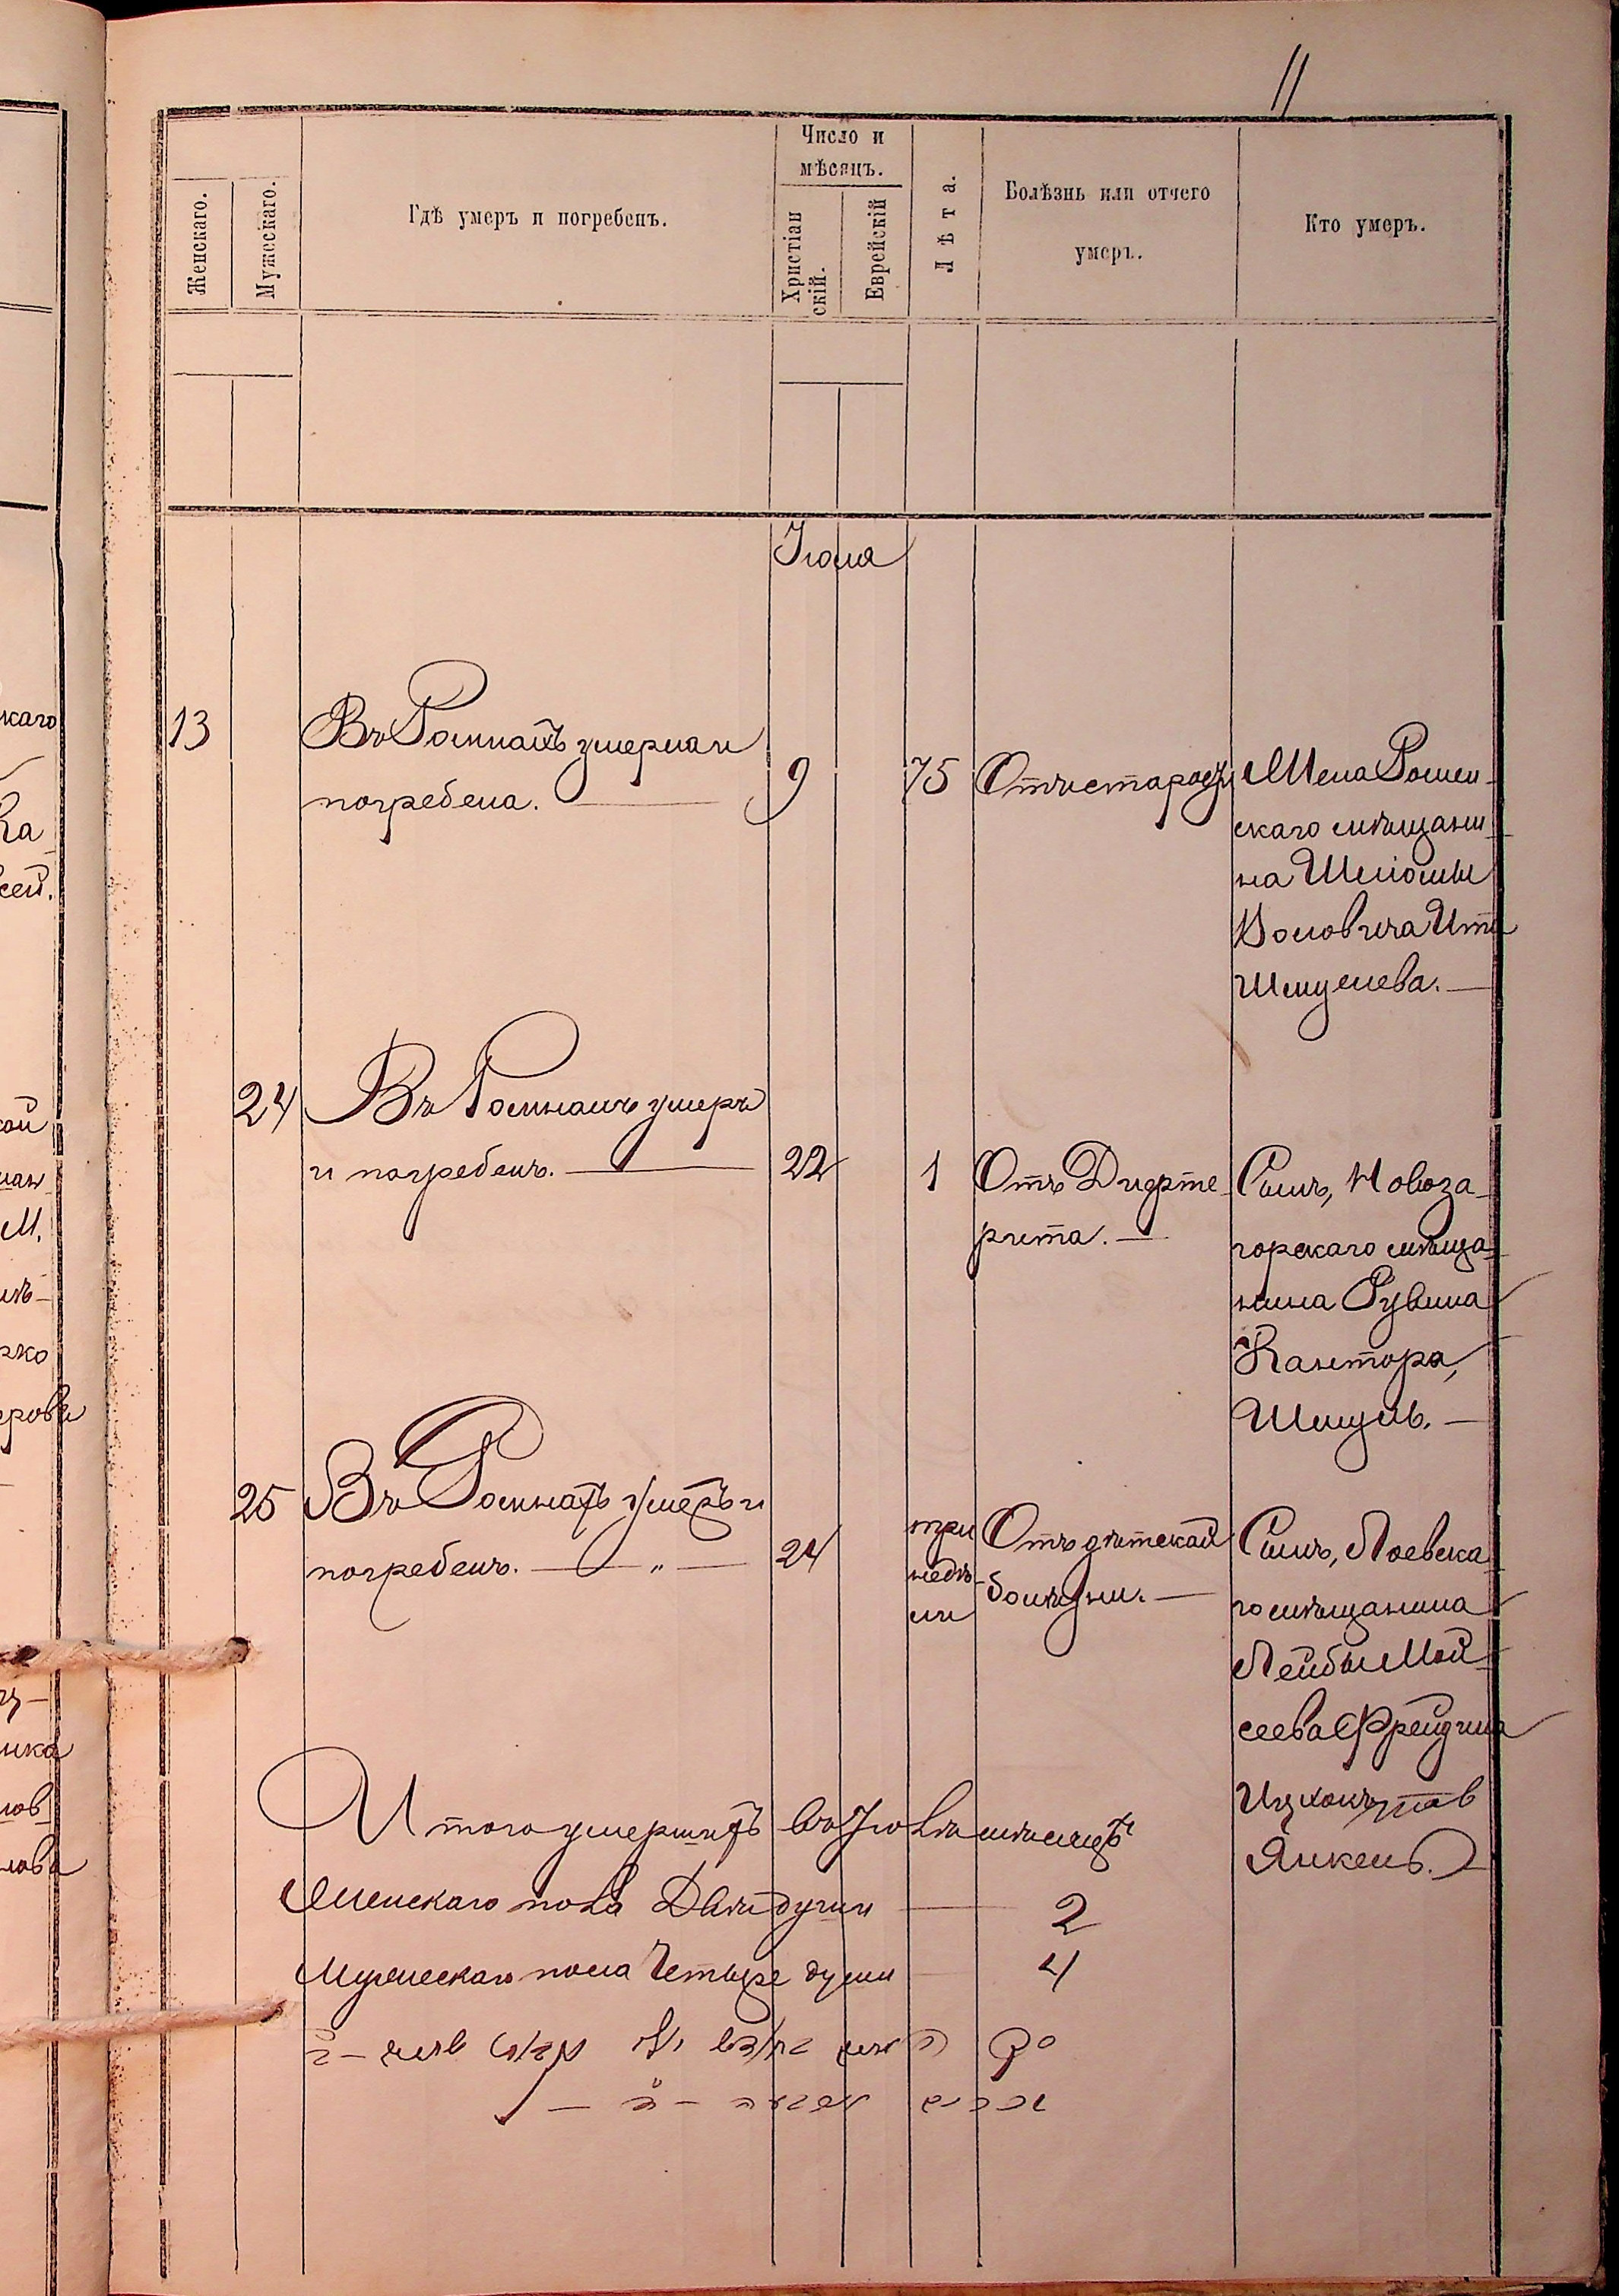 11
Женскаго.
Мужескаго.
Гдѣ умеръ и погребенъ.
Число и
мѣсяцъ.
Христіан
скій.
Еврейскій
Лѣта.
Болѣзнь или отчего
умеръ.
Кто умеръ.
Іюля
13
Въ Ромнахъ умерла и
погребена.
9
75
Отъ старости
Жена Ромен-
скаго мѣщани-
на Шліомы
Воловича Ита
Шмулева.
24
Въ Ромнахъ умеръ
и погребенъ.
22
1
Отъ Дифте-
рита.
Сынъ, Новоза-
горскаго мѣща-
нина Рувина
Кантора,
Шмуль.
25
Въ Ромнахъ умеръ и
погребенъ. — " —
24
три
недѣ-
ли
Отъ дѣтской
болѣзни.
Сынъ, Лоевска-
го мѣщанина
Лейбы Мой-
сеева Фрейдина
Ицхокъ
Янкель.
Итого умершихъ въ Іюлѣ мѣсяцѣ
Женскаго пола Двѣ души — 2
Мужескаго пола Четыре души — 4
каго
ка
сей.
кой
М.
рко
ерова
ика
лов
лова